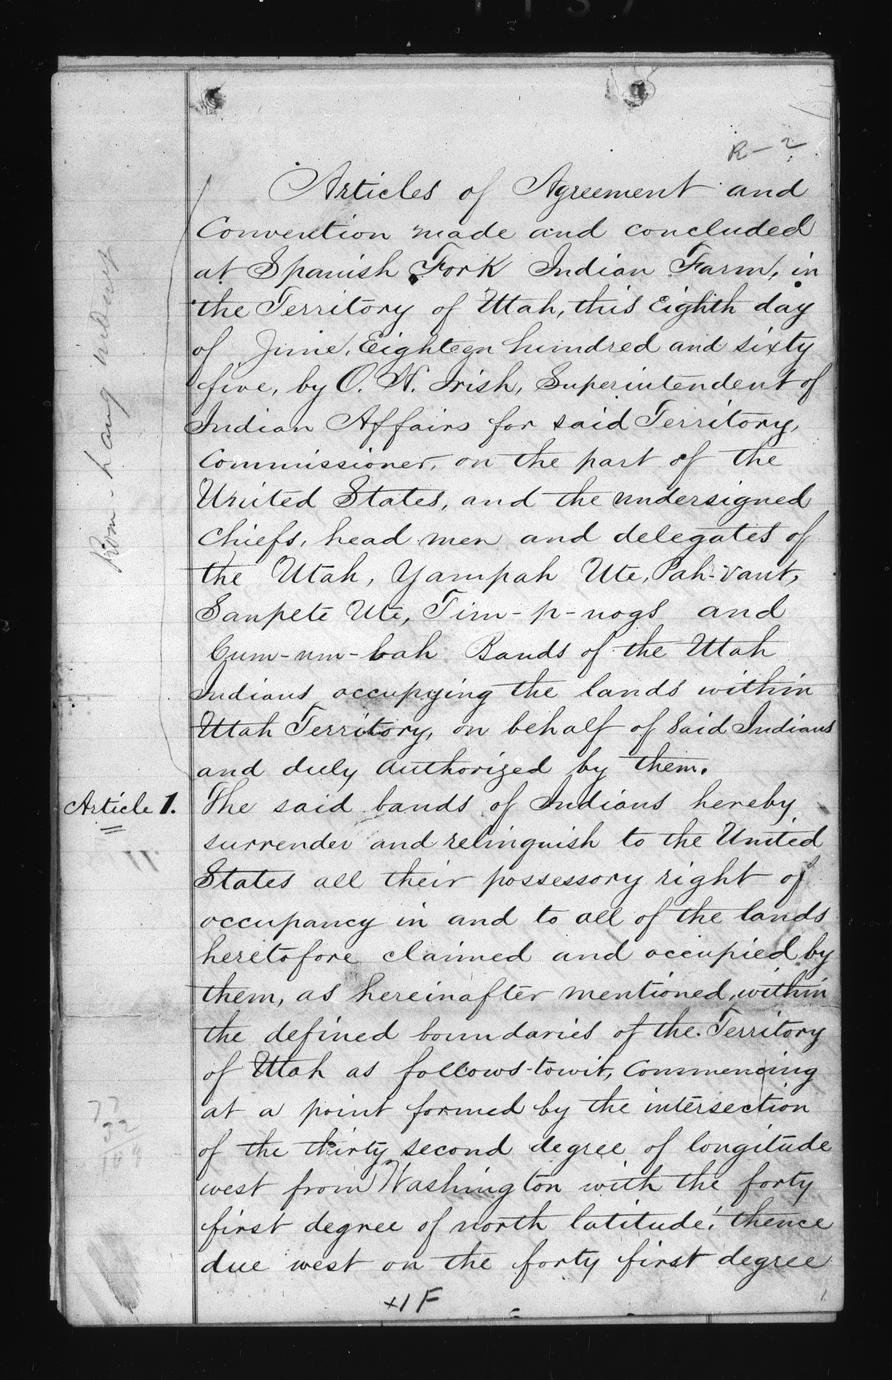 R-2
Articles of Agreement and
Convention made and concluded
at Spanish Fork Indian Farm, in
the Territory of Utah, this Eighth day
of June, Eighteen hundred and sixty
five, by O. H. Irish, Superintendent of
Indian Affairs for said Territory,
Commissioner, on the part of the
United States, and the undersigned
Chiefs, head men and delegates of
the Utah, Yampah Ute, Pah-Vant,
Sanpete Ute, Tim-p-nogs and
Cum-um-bah Bands of the Utah
Indians occupying the lands within
Utah Territory, on behalf of said Indians
and duly authorized by them.
Article 1. The said bands of Indians hereby
surrender and relinquish to the United
States all their possessory right of
occupancy in and to all of the lands
heretofore claimed and occupied by
them, as hereinafter mentioned, within
the defined boundaries of the Territory
of Utah as follows-towit, Commencing
at a point formed by the intersection
of the thirty second degree of longitude
west from Washington with the forty
first degree of north latitude; thence
due west on the forty first degree